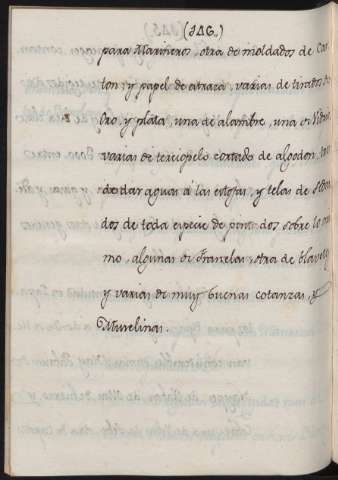 (146.)
para Marineros, otra de moldados de Car
ton, y papel de estraza, varias de tirados de
Oro, y plata, una de alambre, una de Vidrio
varias de terciopelo cortado de algodon,
de dar aguas á las estofas, y telas de Seda
dos de toda especie de pintados sobre lo
mo, algunas de franelas, otra de
y varias de muy buenas cotonzas, y
Muselinas.